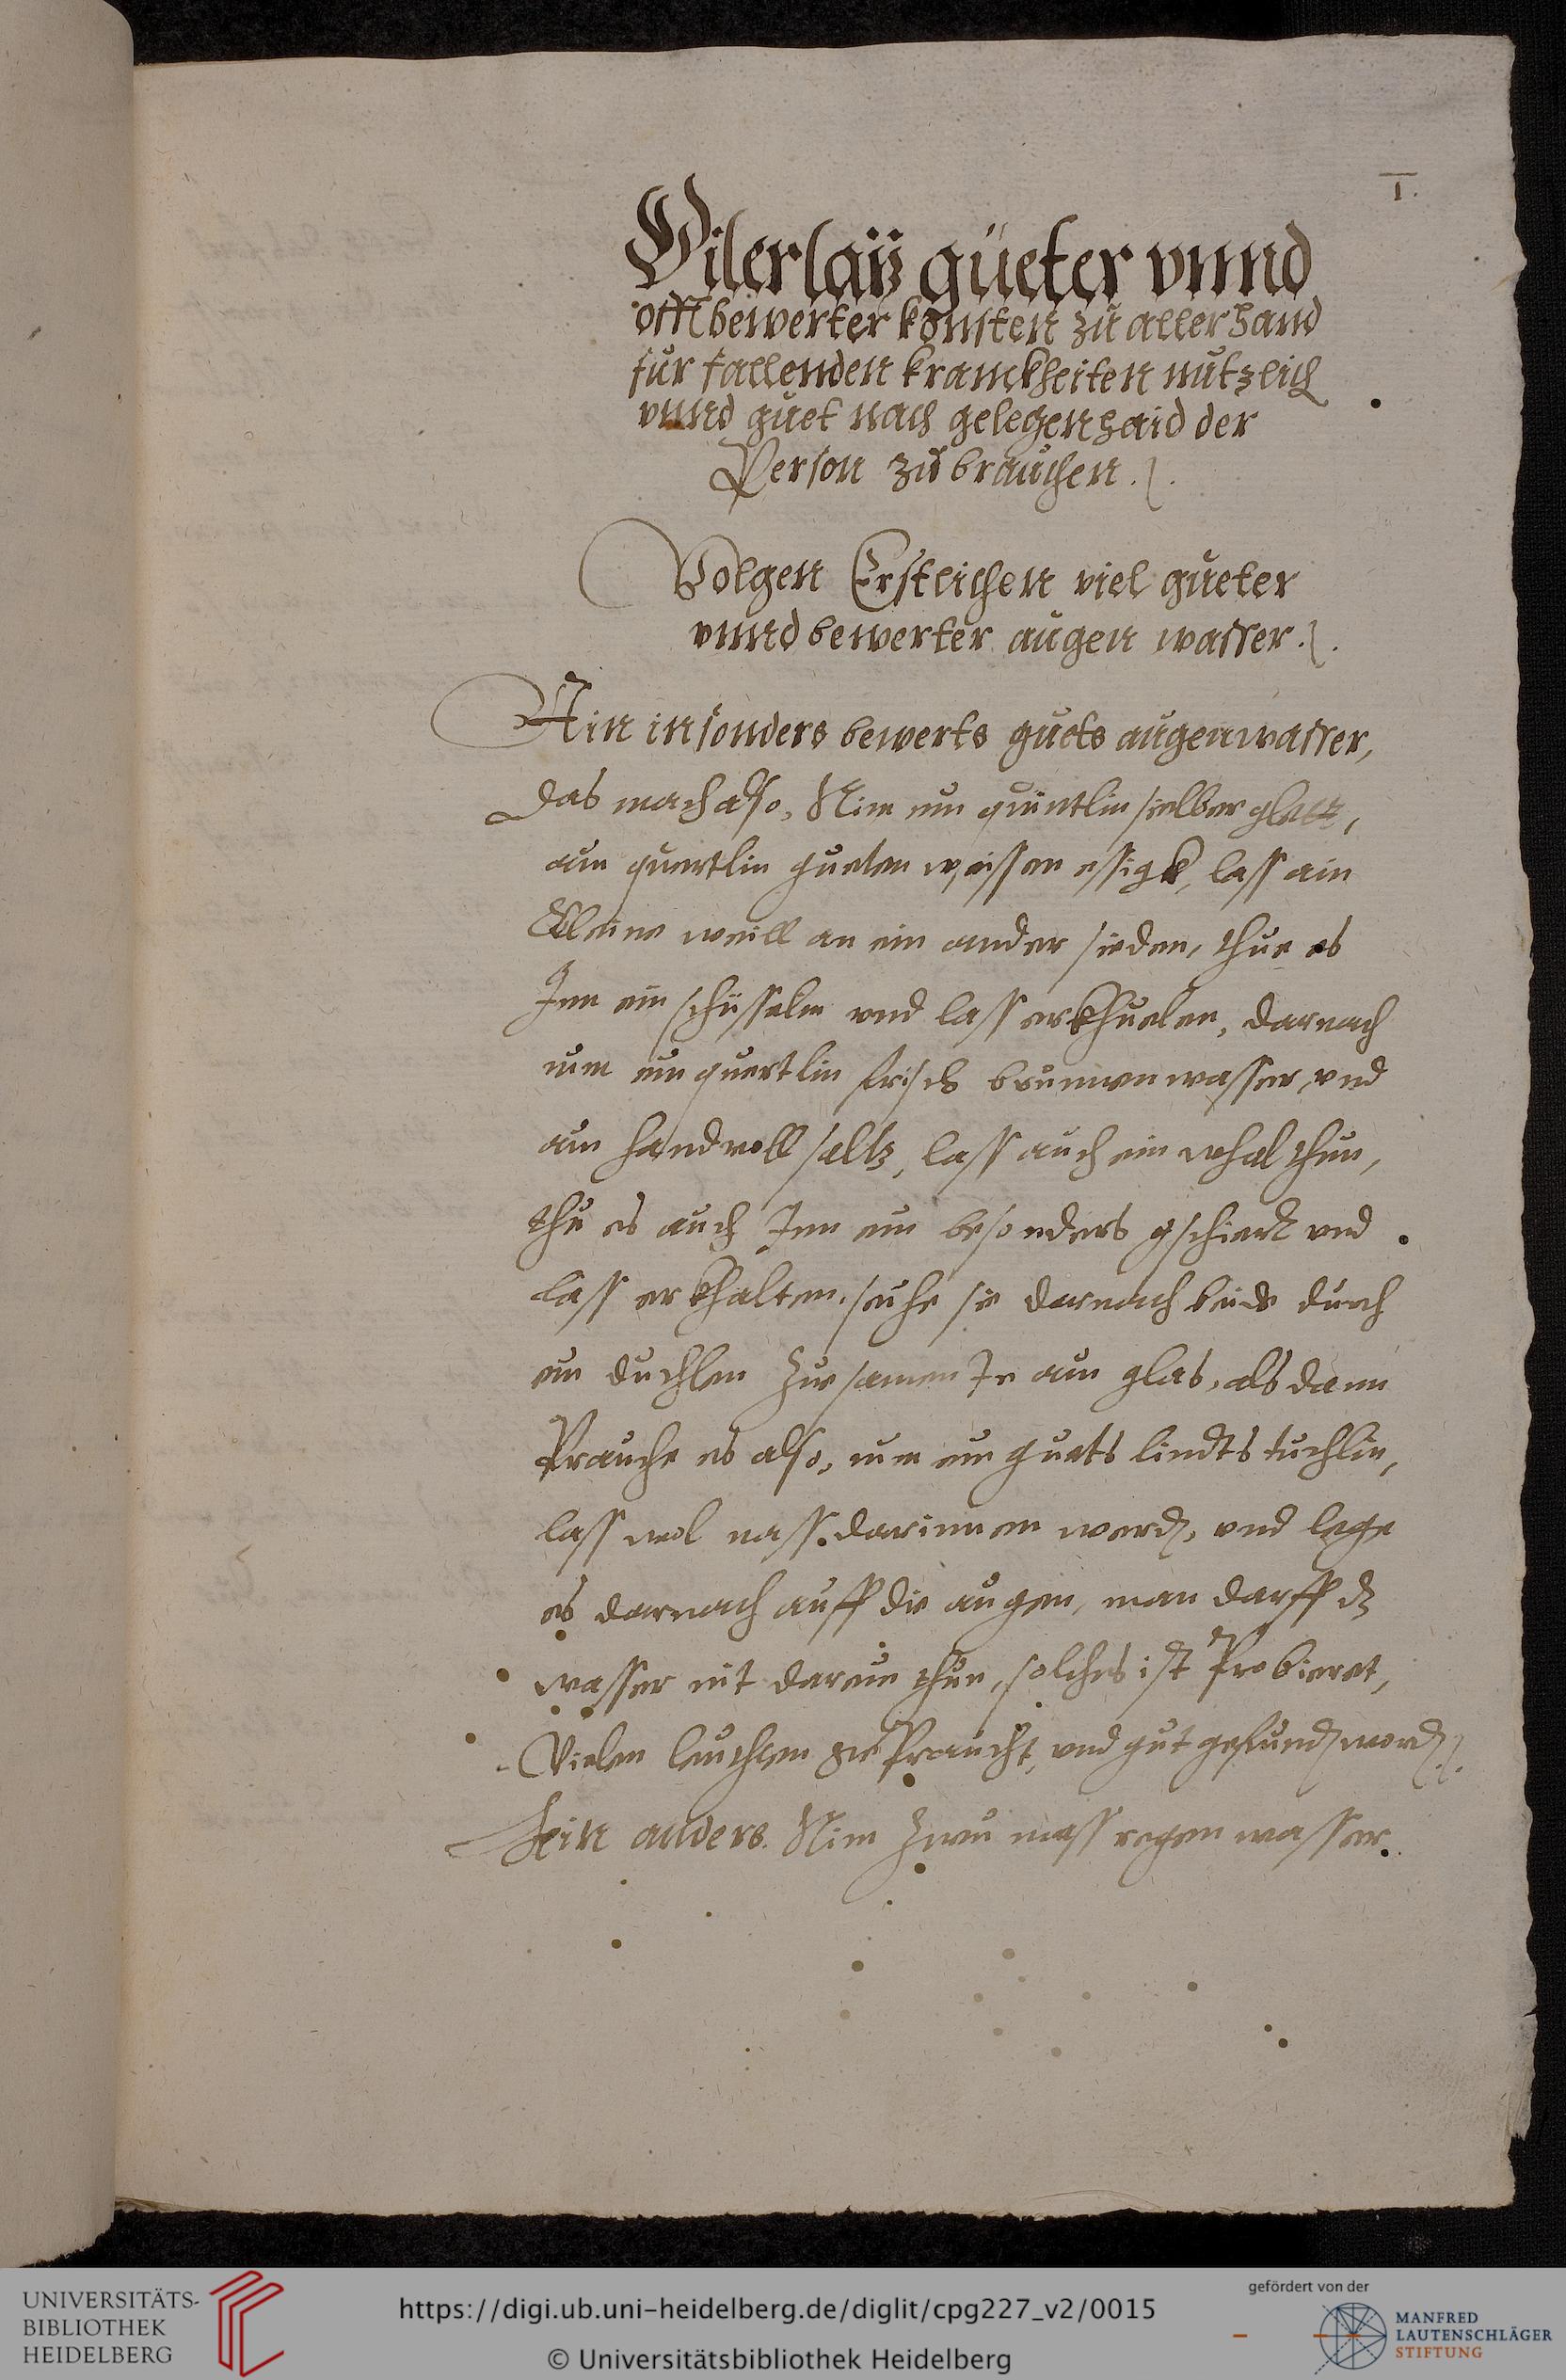 1.
Vilerlaÿ gueter vnnd
offt bewerter konsten zu allerhand
fur fallenden kranckheiten nutzlich
vnnd guet nach gelegenhaid der
Person zu brauchen.
Volgen Erstlichen viel gueter
vnnd bewerter augen wasser.
Ain insonders bewerts guets augenwasser,
das mach also, Nim ein quintlin silber glett,
ain quertlin gueten weissen essigk, lass ain
Kleine weill an ein ander sieden, thue es
Inn ein schüsselin vnd lass erkhuelen, darnach
nim ein quertlin frisch brunnenwasser, vnd
ain handvoll saltz, lass auch ein whal thun,
thu es auch Inn ein besonders gschierr vnd
lass erkhalten. seuhe sie darnach beide durch
ein duchlen zue samen In ain glas, als dann
Prauche es also, nim ein guets lindts tuchlin,
lass wol nass darinnen werdn, vnd lege
es darnach auff die augen, man darff dz
wasser nit darein thun, solches ist Probieret,
Vielen leuthen gePraucht, vnd gut gefundn wordn.
Ein anders. Nim zwu mass regen wasser.
UNIVERSITÄTS-
BIBLIOTHEK
HEIDELBERG
https://digi.ub.uni-heidelberg.de/diglit/cpg227_v2/0015
© Universitätsbibliothek Heidelberg
gefördert von der
MANFRED
LAUTENSCHLÄGER
STIFTUNG